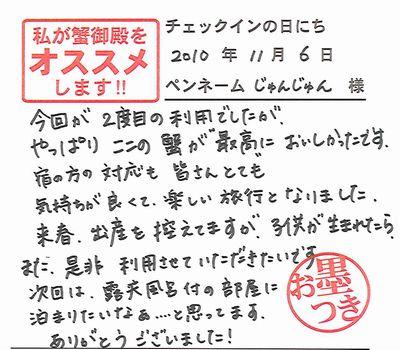 私が蟹御殿を
オススメ
します!!
チェックインの日にち
2010 年 11 月 6 日
ペンネーム じゅんじゅん 様
今回が 2度目の利用でしたが、
やっぱり ここの 蟹が 最高に おいしかったです。
宿の方の 対応も 皆さんとても
気持ちが良くて、楽しい 旅行となりました。
来春、出産を 控えてますが、子供が生まれたら、
また、是非 利用させていただきたいです
次回は、露天風呂付の部屋に
泊まりたいなぁ…と思ってます。
ありがとう ございました!
お墨つき